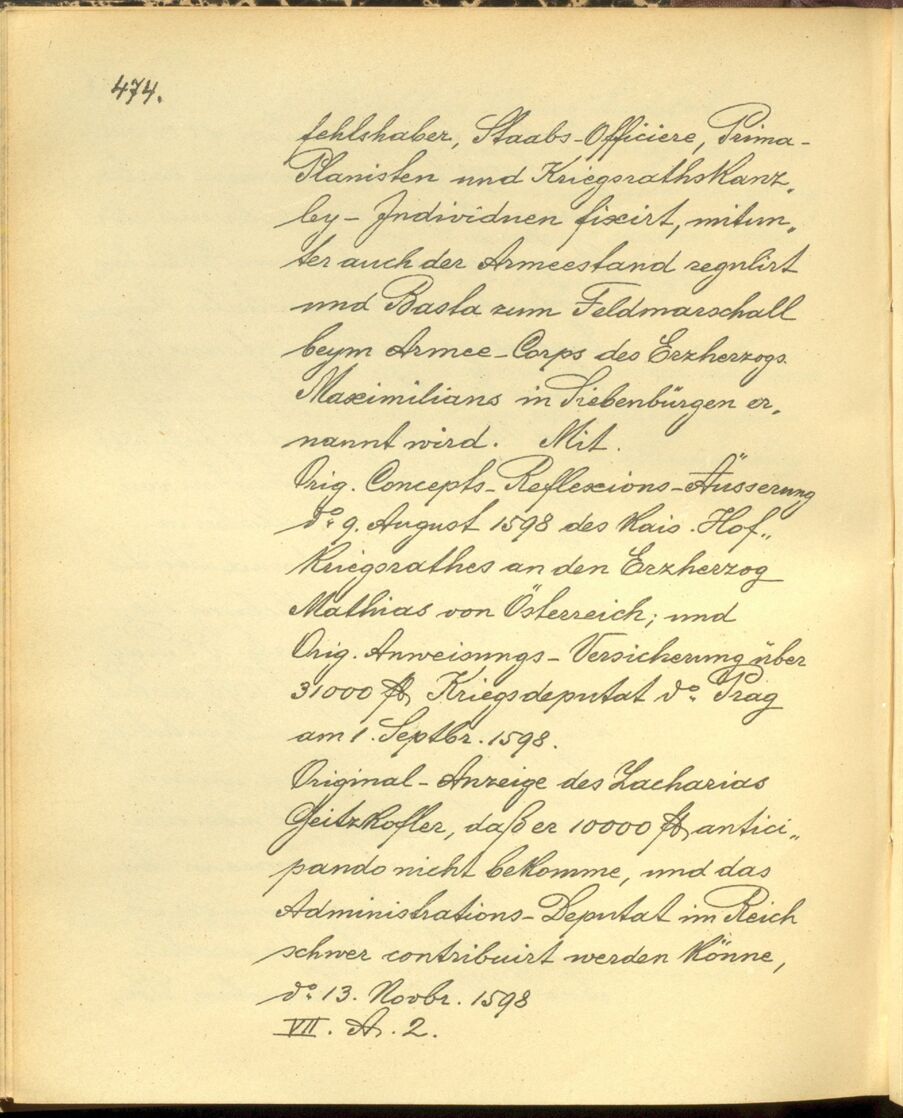 474.
fehlshaber, Staabs-Officiere, Prima-
Planisten und Kriegsrathskanz„
ley-Individuen fixirt, mitun„
ter auch der Armeestand regulirt
und Basta zum Feldmarschall
beym Armee-Corps des Erzherzogs
Maximilians in Siebenbürgen er„
nannt wird. Mit.
Orig. Concepts-Reflexions-Äusserung
d° 9. August 1598 des kais. Hof„
kriegsrathes an den Erzherzog
Mathias von Österreich; und
Orig. Anweisungs-Versicherung über
31000 fl Kriegsdeputat d° Prag
am 1. Septbr. 1598.
Original-Anzeige des Zacharias
Geitzkofler, daß er 10000 fl antici„
pando nicht bekomme, und das
Administrations-Deputat im Reich
schwer contribuirt werden könne,
d° 13. Novbr. 1598
VII. A. 2.